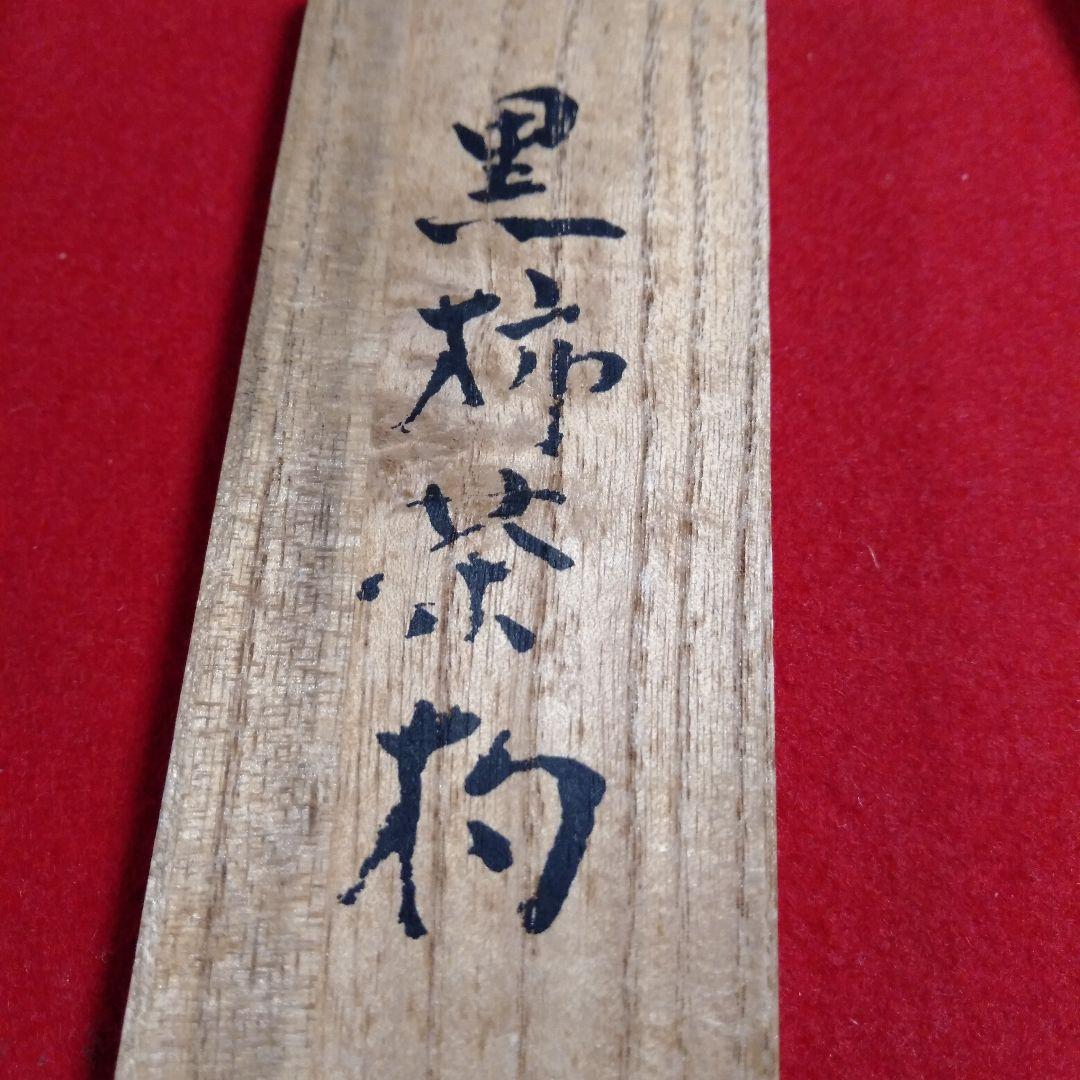 黒柿茶杓